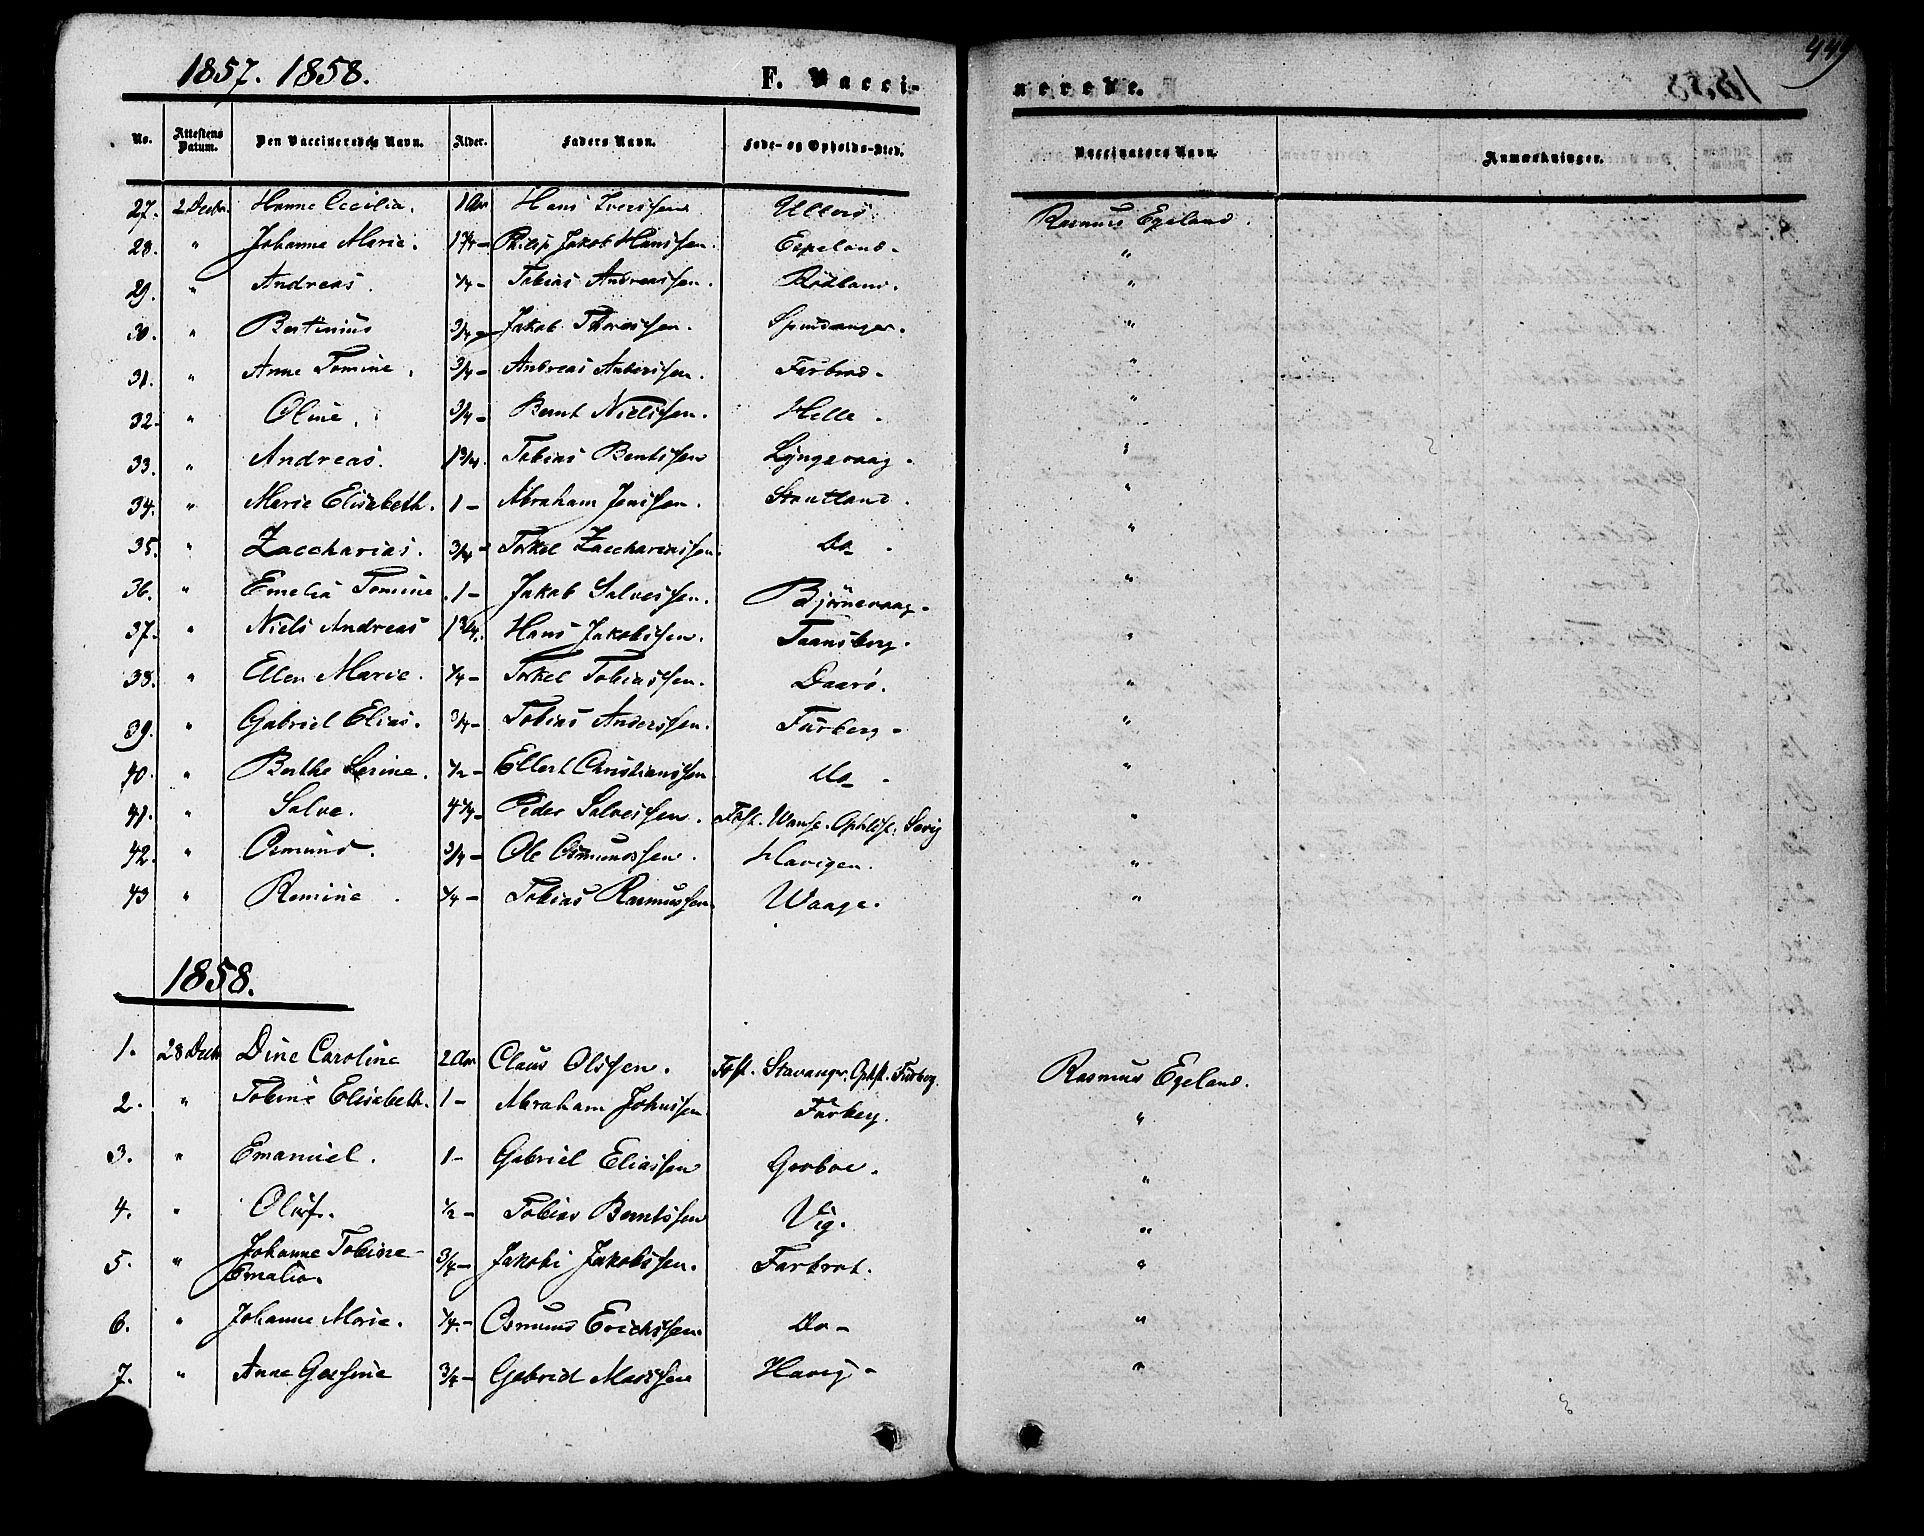 1857. 1858.
F. Vacci-
nerede.
449
No. Attestens Datum. Den Vaccineredes Navn. Alder. Faders Navn. Føde- og Opholds-Sted. Vaccinators Navn. Anmærkninger.
27. 2 Decbr. Hanne Cecilia. 1 Aar Hans Iverssen Ullerø. Rasmus Egeland.
28. " Johanne Marie. 1 3/4 - Philip Jakob Hanssen. Espeland - "
29. " Andreas. 1/4 - Tobias Andreassen. Rødland. "
30. " Bertinius 3/4 - Jakob Thorassen. Spindsanger. "
31. " Anne Tomine. 3/4 - Andreas Anderssen. Farbrod - "
32. " Oline. 3/4 - Bernt Nielssen. Helle - "
33. " Andreas. 1 3/4. Tobias Berntssen Lyngsvaag - "
34. " Marie Elisabeth. 1 - Abraham Jenssen. Stoutland. "
35. " Zaccharias. 3/4 - Torkel Zacchariassen. Do - "
36. " Emelia Tomine. 1 - Jakob Salvessen. Bjørnevaag - "
37. " Niels Andreas 1 3/4. Hans Jakobssen. Taansberg. "
38. " Ellen Marie. 1/4 - Torkel Tobiassen. Daarø. "
39. " Gabriel Elias. 3/4 - Tobias Anderssen. Fuirberg - "
40. " Berthe Serine. 1/2 - Ellert Christianssen Do - "
41. " Salve. 4 1/4 - Peder Salvessen. Fdst. Wanse. Ophldst. Sevig "
42. " Osmund. 3/4 - Ole Osmundssen. Havigen. "
43 " Romine. 1/4 - Tobias Rasmussen. Waage. "
1858.
1. 28 Decbr Dine Caroline 2 Aar Claus Olssen. Fdst. Stavanger, Ophst. Furberg. Rasmus Egeland.
2. " Tobine Elisabeth. 1 - Abraham Johnssen Furberg. "
3. " Emanuel. 1 - Gabriel Eliassen "
4. " Oluf. 1/2 - Tobias Berntssen Vig. "
5. " Johanne Tobine
Emalia. 3/4 - Jakobi Jakobssen. Farbrot. "
6. " Johanne Marie. 1/4. - Osmund Erichssen. Do - "
7. " Anne Gusine 3/4 - Gabriel Havig - "